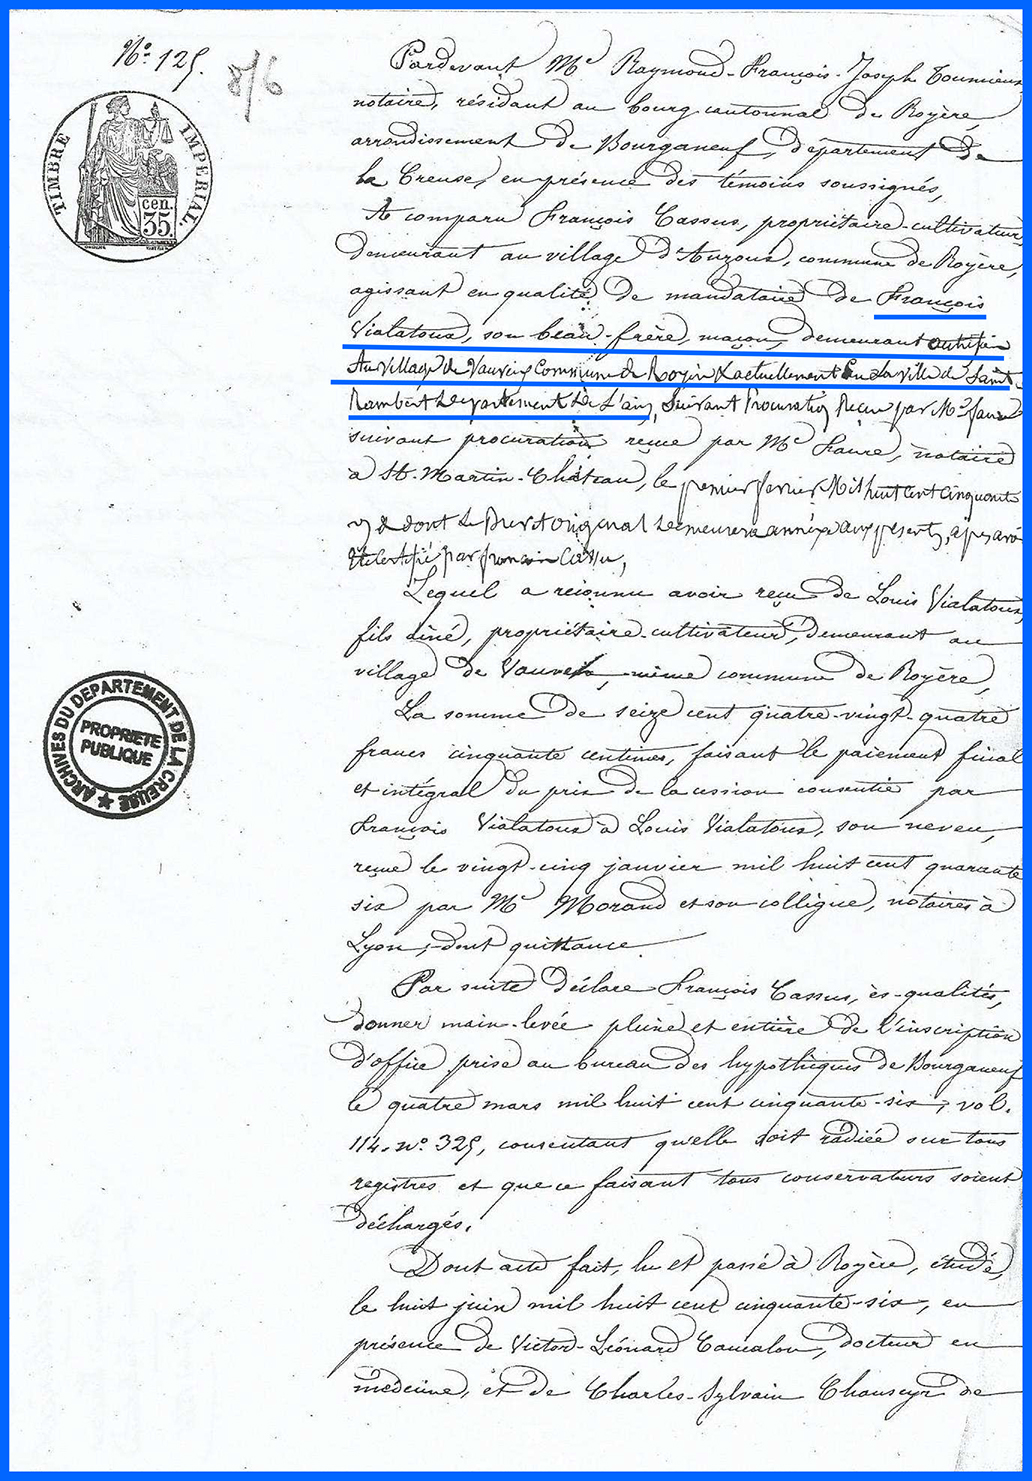 N° 125.
8/6
TIMBRE IMPERIAL.
cen. 35.
Pardevant Me Raymond-François-Joseph Toumieux
notaire, résidant au bourg cantonnal de Royère,
arrondissement de Bourganeuf, département de
la Creuse, en présence des témoins soussignés,
A comparu François Cassus, propriétaire-cultivateur,
demeurant au village d'Auzoux, commune de Royère,
agissant en qualité de mandataire de François
Vialatoux, son beau-frère, maçon, demeurant
Au village de Vauveix Commune de Royère actuellement En la ville de Saint
Rambert Département De L'ain, Suivant Procuration Reçue par Me faure
suivant procuration reçue par Me Faure, notaire
à St. Martin-Château, le premier février Mil huit cent cinquante
dont Le Brevet original Demeurera annexé aux présentes, après avoir
été certifié par françois Cassus,
Lequel a reconnu avoir reçu de Louis Vialatoux,
fils aîné, propriétaire-cultivateur, demeurant au
village de Vauveix, même commune de Royère,
La somme de seize cent quatre-vingt-quatre
francs cinquante centimes, faisant le paiement final
et intégral du prix de la cession consentie par
François Vialatoux à Louis Vialatoux, son neveu,
reçue le vingt-cinq janvier mil huit cent quarante
six par Me Morand et son collègue, notaires à
Lyon; dont quittance
Par suite déclare François Cassus, ès-qualités,
donner main-levée pleine et entière de l'inscription
d'office prise au bureau des hypothèques de Bourganeuf
le quatre mars mil huit cent cinquante-six; vol.
114. n° 325, consentant qu'elle soit radiée sur tous
registres et que ce faisant tous conservateurs soient
déchargés.
Dont acte fait, lu et passé à Royère, étude,
le huit juin mil huit cent cinquante-six, en
présence de Victor-Léonard Camcalon, docteur en
médecine, et de Charles-Sylvain Chauseyr de
ARCHIVES DU DEPARTEMENT DE LA CREUSE
PROPRIETE
PUBLIQUE